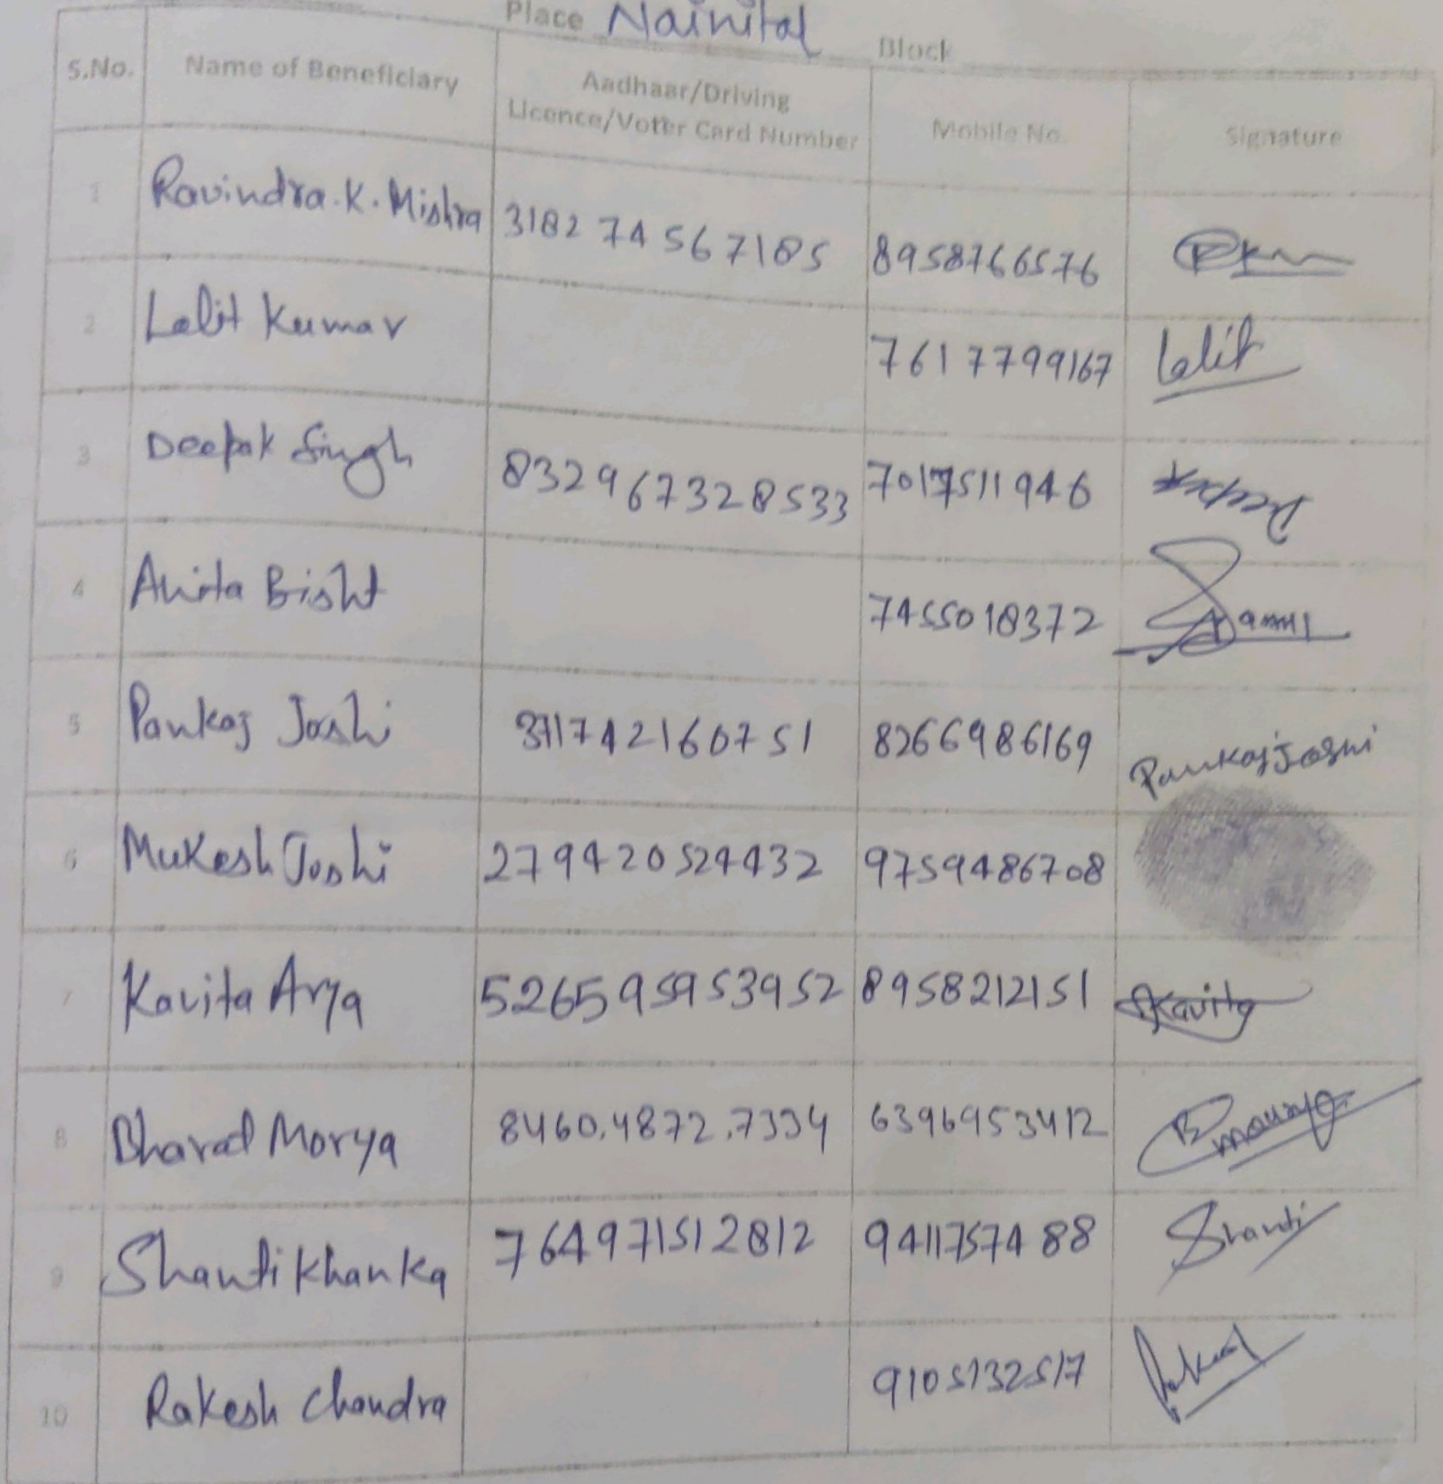 Place Nainital Block
S.No. Name of Beneficiary Aadhaar/Driving Licence/Voter Card Number Mobile No. Signature
1 Ravindra.K.Mishra 3182 74 567185 8958766576
2 Lalit Kumar 7617799167 Lalit
3 Deepak Singh 832967328533 7017511946 Deepak
4 Anita Bisht 7455018372
5 Pankaj Joshi 371742160751 8266986169 Pankaj Joshi
6 Mukesh Joshi 279420524432 9759486708
7 Kavita Arya 526595953952 8958212151 Kavita
8 Bharat Morya 8460.4872.7334 6396953412 Bmaurya
9 Shanti Khanka 764971512812 9411757488 Shanti
10 Rakesh Chandra 9105132517